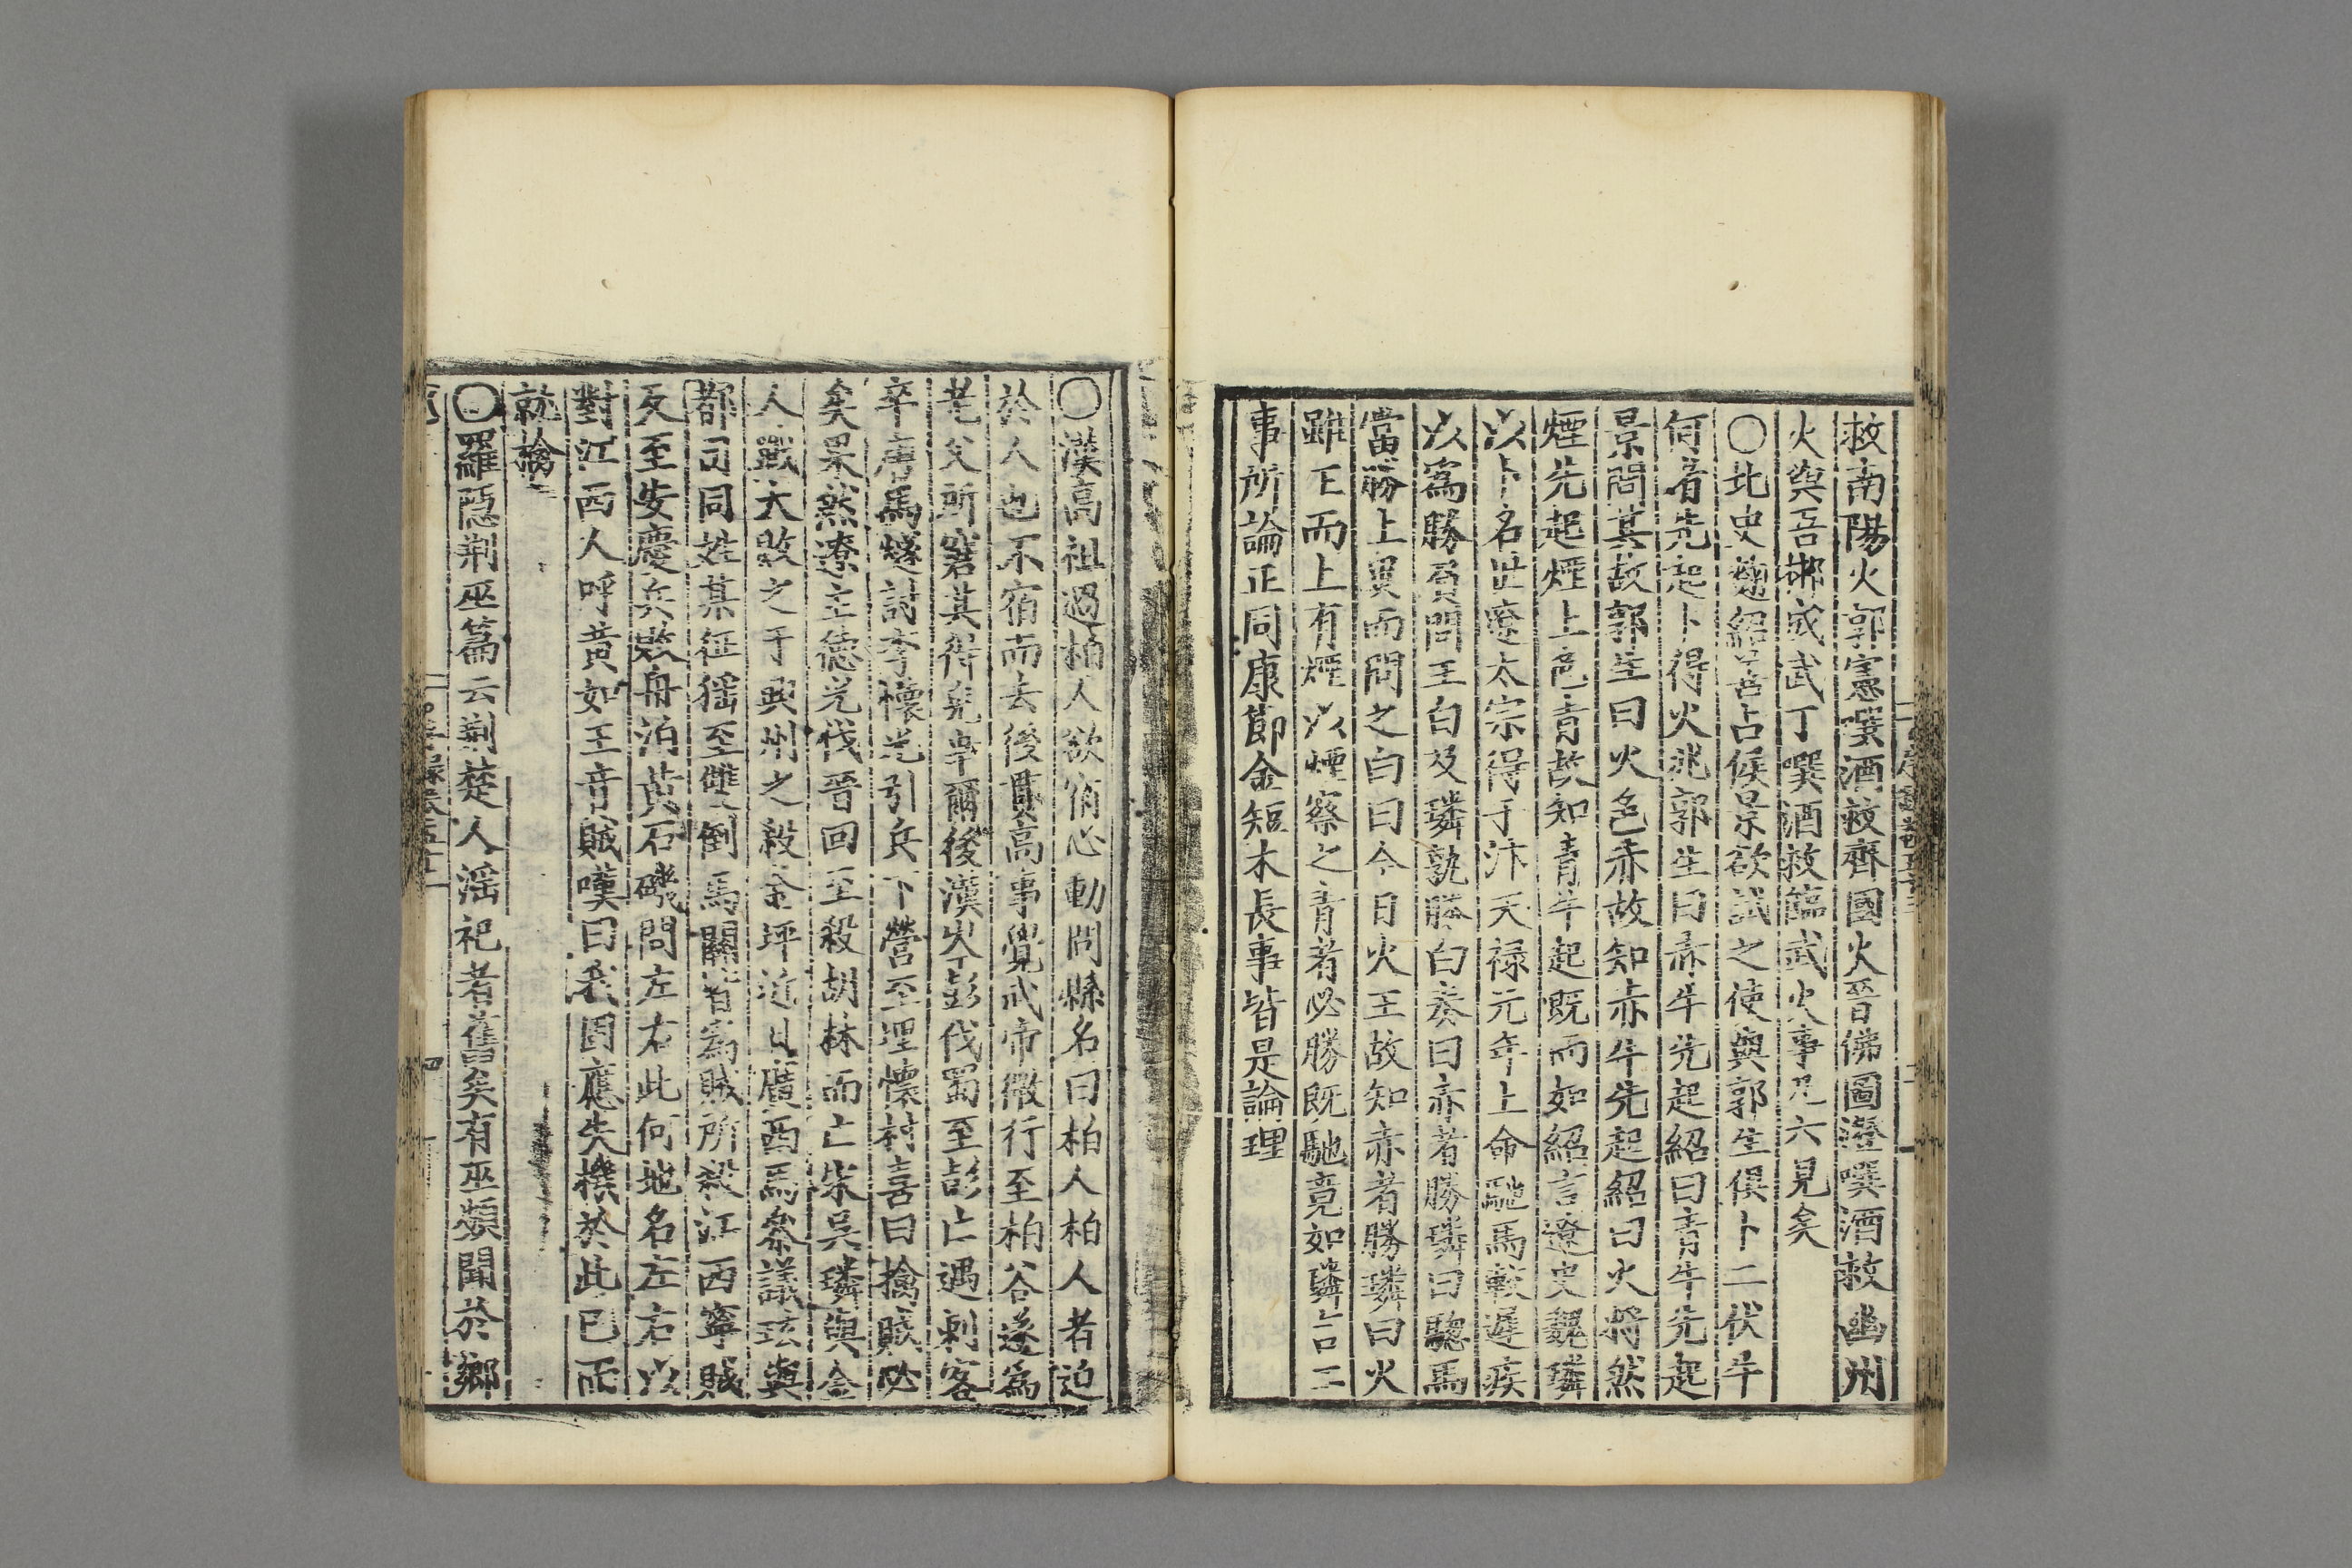 救南陽火郭憲噀酒救齊國火晉佛圖澄噀酒救幽州
火與吾郴成武丁噀酒救臨武火事凡六見矣
○北史趙紹善占候景欲試之使與郭生俱卜二伏牛
何者先起卜得火兆郭生曰赤牛先起紹曰青牛先起
景問其故郭生曰火色赤故知赤牛先起紹曰火將然
煙先起煙上色青故知青牛起既而如紹言遼史魏璘
以卜名世遼太宗得于汴天禄元年上命馳馬較遲疾
以為勝負問王白及璘孰勝白奏曰赤者勝璘曰驄馬
當勝上異而問之白曰今日火王故知赤者勝璘曰火
雖王而上有煙以煙察之青者必勝既馳竟如璘言二
事所論正同康節金短木長事皆是論理
○漢高祖過柏人欲宿心動問縣名曰柏人柏人者迫
於人也不宿而去後貫高事覺武帝微行至柏谷遂為
老父所窘其得免幸爾後漢岑彭伐蜀至彭亡遇刺客
卒唐馬燧討李懷光引兵下營至埋懷村喜曰擒賊必
矣果然遼主德光伐晉回至殺胡林而亡宋吳璘與金
人戰大敗之于興州之殺金坪近日廣西馬叅議玹與
都司同姓某征猺至雙倒馬關皆為賊所殺江西寧賊
反至安慶兵敗舟泊黃石磯問左右此何地名左右以
對江西人呼黃如王音賊嘆曰我固應失機於此已而
就擒
○羅隱荆巫篇云荆楚人淫祀者舊矣有巫頻聞於鄉
四